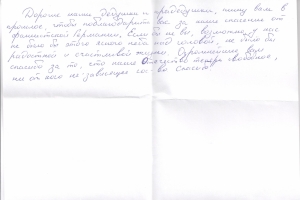 Дорогие наши дедушки и прадедушки, пишу вам в
прошлое, чтобы поблагодарить вас за наше спасение от
фашистской Германии. Если бы не вы, возможно, у нас
не было бы этого ясного неба над головой, не было бы
радостной и счастливой жизни. Огромнейшее вам
спасибо за то, что наше Отечество теперь свободное,
ни от кого не зависящее спасибо